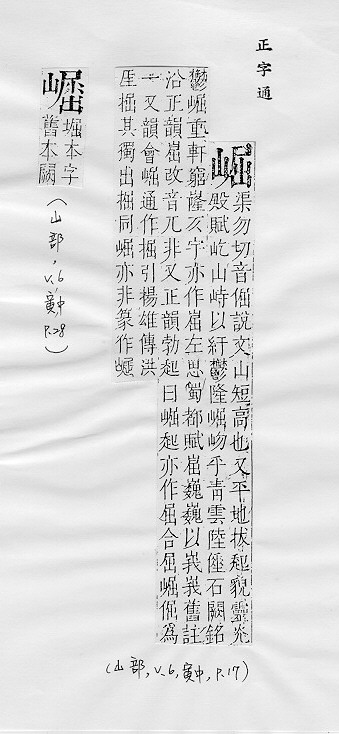 正字通
崛 渠勿切音倔說文山短高也又平地拔起貌靈光
殿賦屹山峙以紆鬱隆崛岉乎青雲陸倕石闕銘
鬱崛重軒亦作崫左思蜀都賦崫巍巍以峩峩舊註
沿正韻崫改音兀非又正韻勃起曰崛起亦作屈合屈崛倔為
一又韻會崛通作掘引楊雄傳洪
厓掘其獨出掘同崛亦非篆作
(山部,v.6,寅中,P.17)
堀本字
舊本闕
(山部,v.6,寅中P.28)